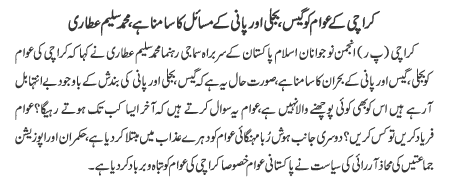 کراچی کے عوام کو گیس، بجلی اور پانی کے مسائل کا سامنا ہے، محمد سلیم عطاری
کراچی (پ ر) انجمن نوجوانان اسلام پاکستان کے سربراہ سماجی رہنما محمد سلیم عطاری نے کہا کہ کراچی کی عوام
کو بجلی، گیس اور پانی کے بحران کا سامنا ہے، صورت حال یہ ہے کہ گیس بجلی اور پانی کی بندش کے باوجود بے انتہا بل
آرہے ہیں اس کو بھی کوئی پوچھنے والا نہیں ہے، عوام یہ سوال کرتے ہیں کہ آخر ایسا کب تک ہوتے رہیگا؟ عوام
فریاد کریں تو کس کریں؟ دوسری جانب ہوش رُبا مہنگائی عوام کو دہرے عذاب میں مبتلا کر دیا ہے، حکمران اور اپوزیشن
جماعتیں کی محاذ آرائی کی سیاست نے پاکستانی عوام خصوصا کراچی کی عوام کو تباہ و برباد کر دیا ہے۔